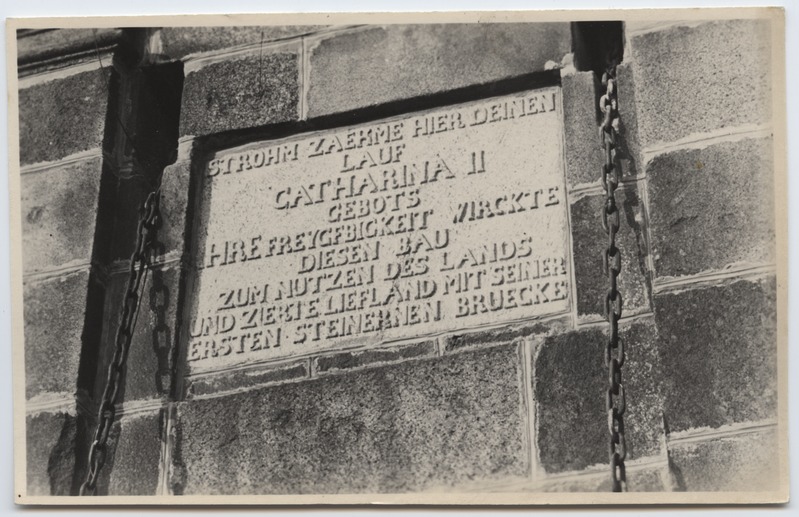 STROHM ZAEKME HIER DEINEN
LAUF
CATHARINA II
GEBOTS
IHRE FREYGEBIGKEIT WIRCKTE
DIESEN BAU
ZUM NUTZEN DES LANDS
UND ZIERTE LIEFLAND MIT SEINER
ERSTEN STEINERNEN BRUECKE